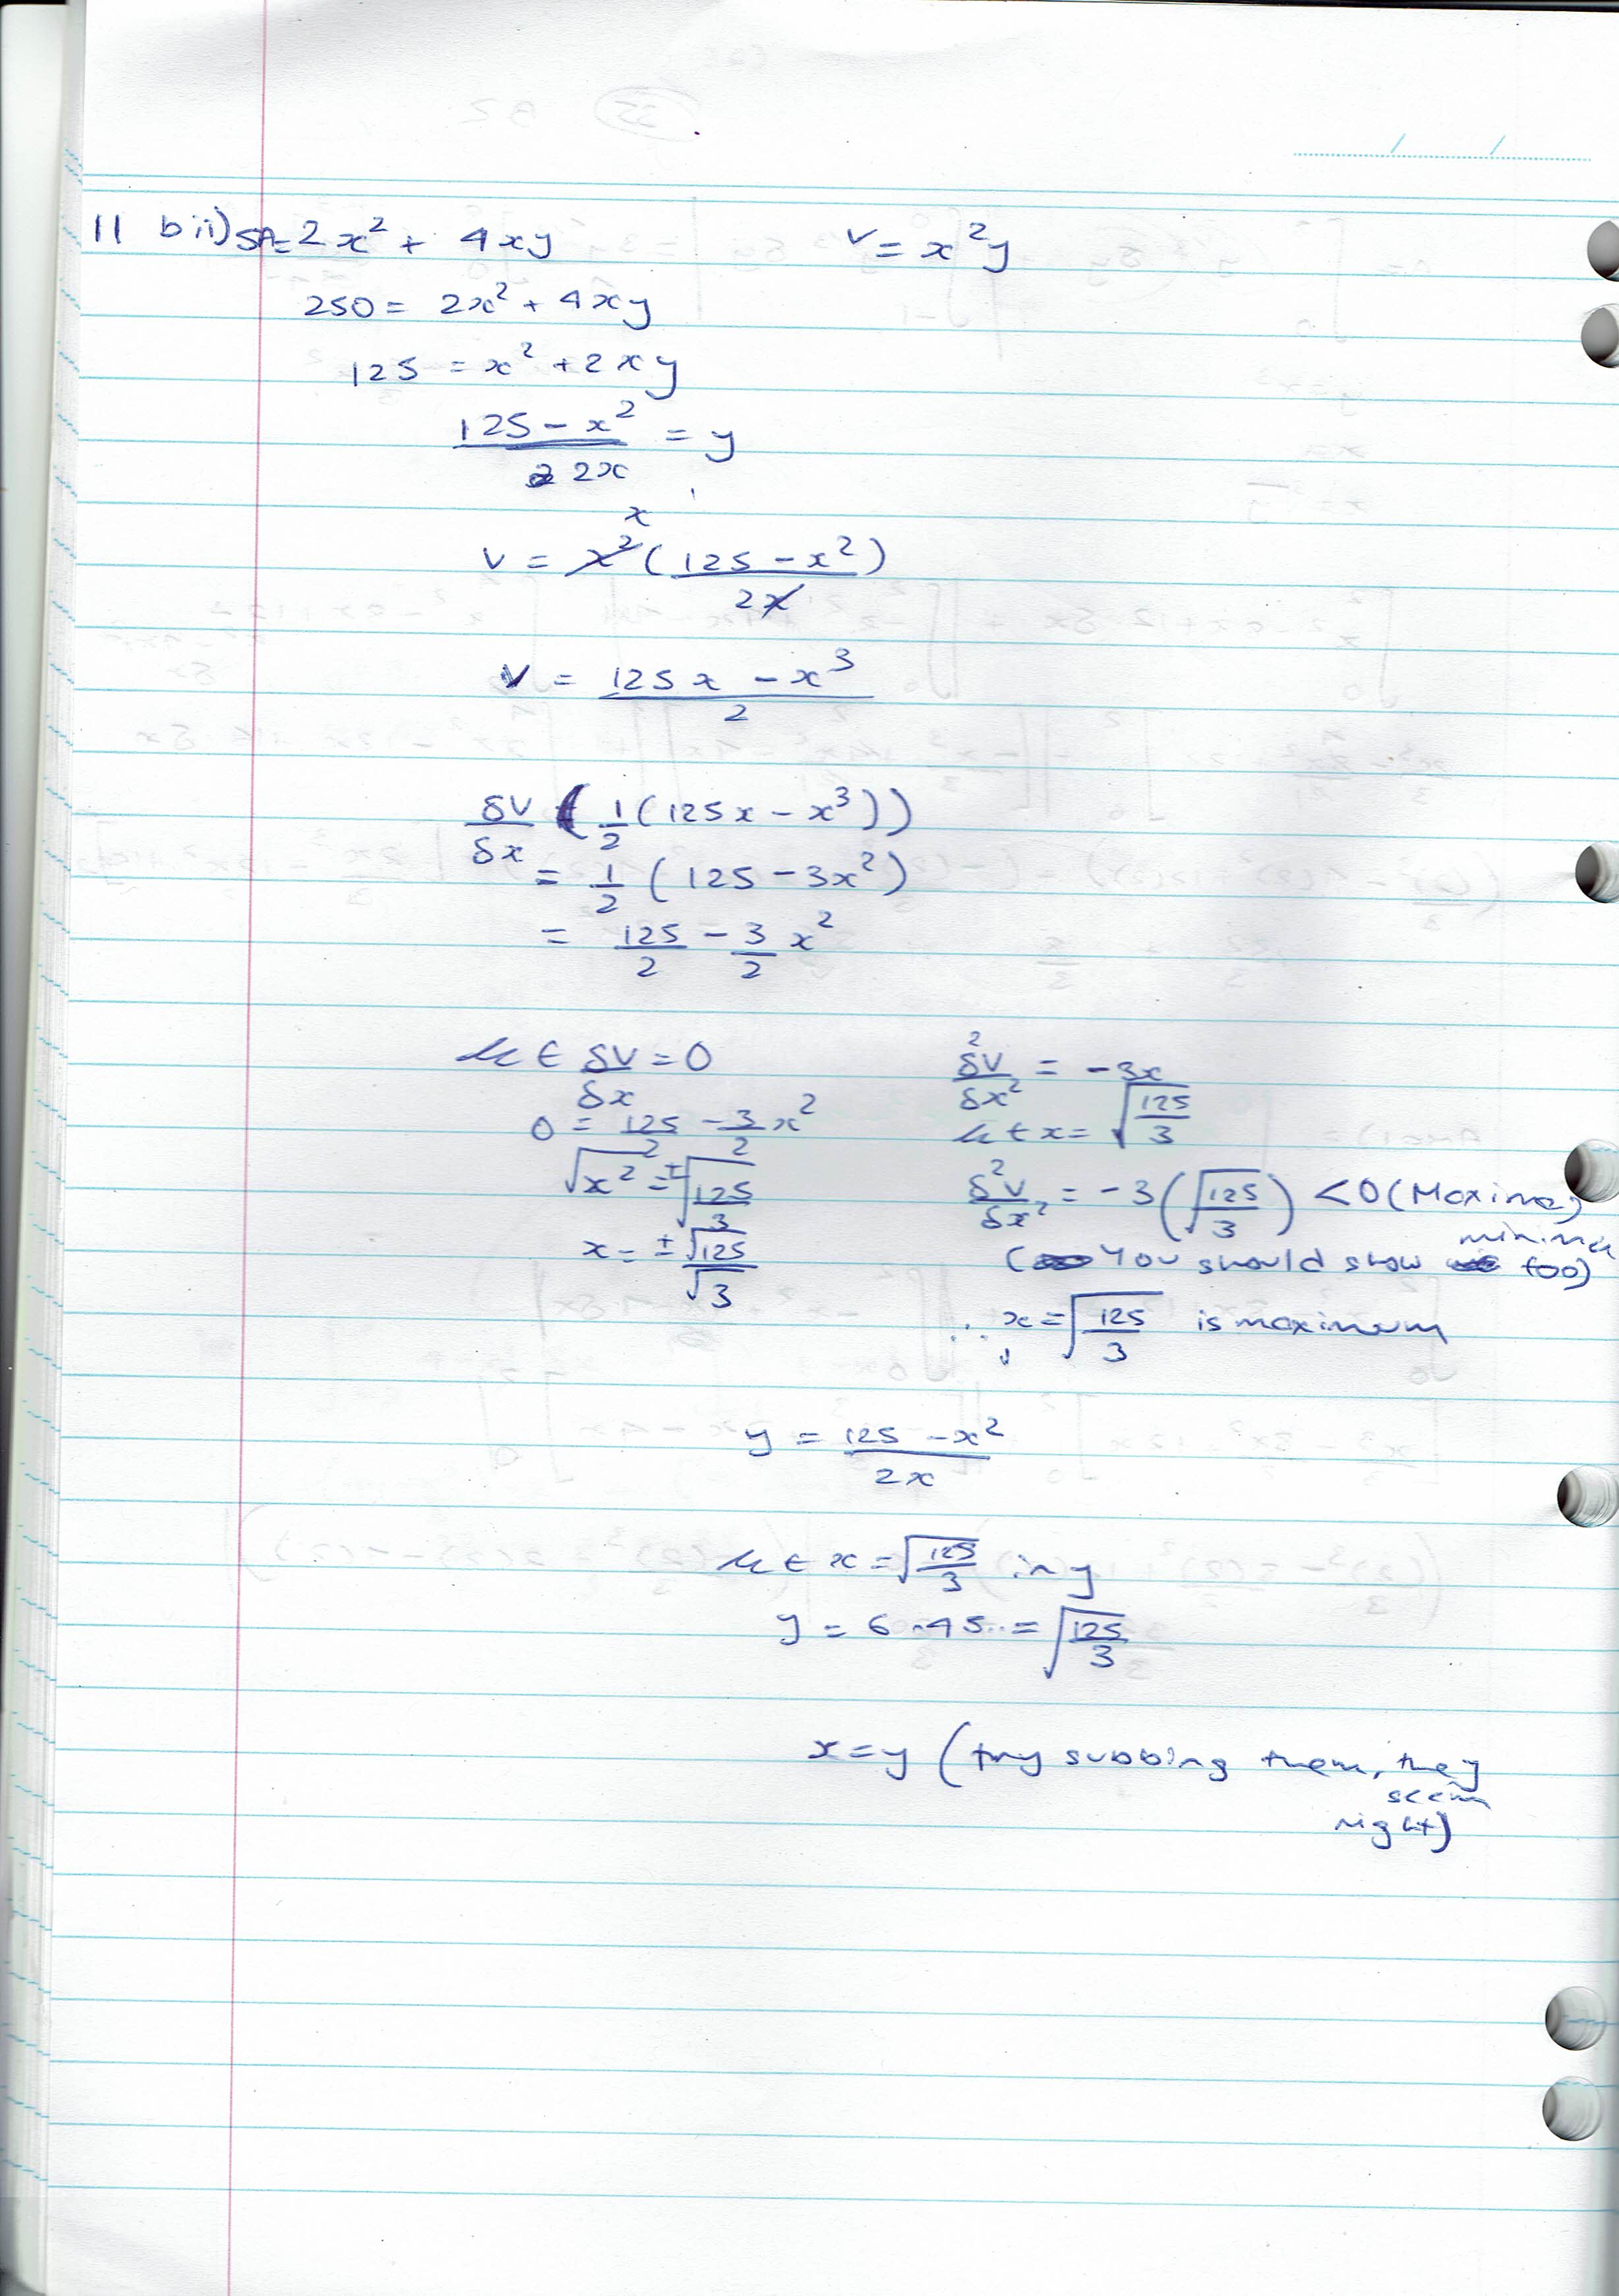 11 b ii) SA = 2x² + 4xy
V = x²y
250 = 2x² + 4xy
125 = x² + 2xy
(125 - x²)/2x = y
x
V = x²((125 - x²)/2x)
V = (125x - x³)/2
δV/δx (1/2(125x - x³))
= 1/2 (125 - 3x²)
= 125/2 - 3/2 x²
let δV/δx = 0
0 = 125/2 - 3/2 x²
√x² = ±√(125/3)
x = ±√125/√3
δ²V/δx² = -3x
let x = √(125/3)
δ²V/δx² = -3(√(125/3)) < 0 (Maxima)
(You should show minima too)
∴ x = √(125/3) is maximum
y = (125 - x²)/2x
let x = √(125/3) in y
y = 6.45.. = √(125/3)
x = y (try subbing them, they
seem
right)